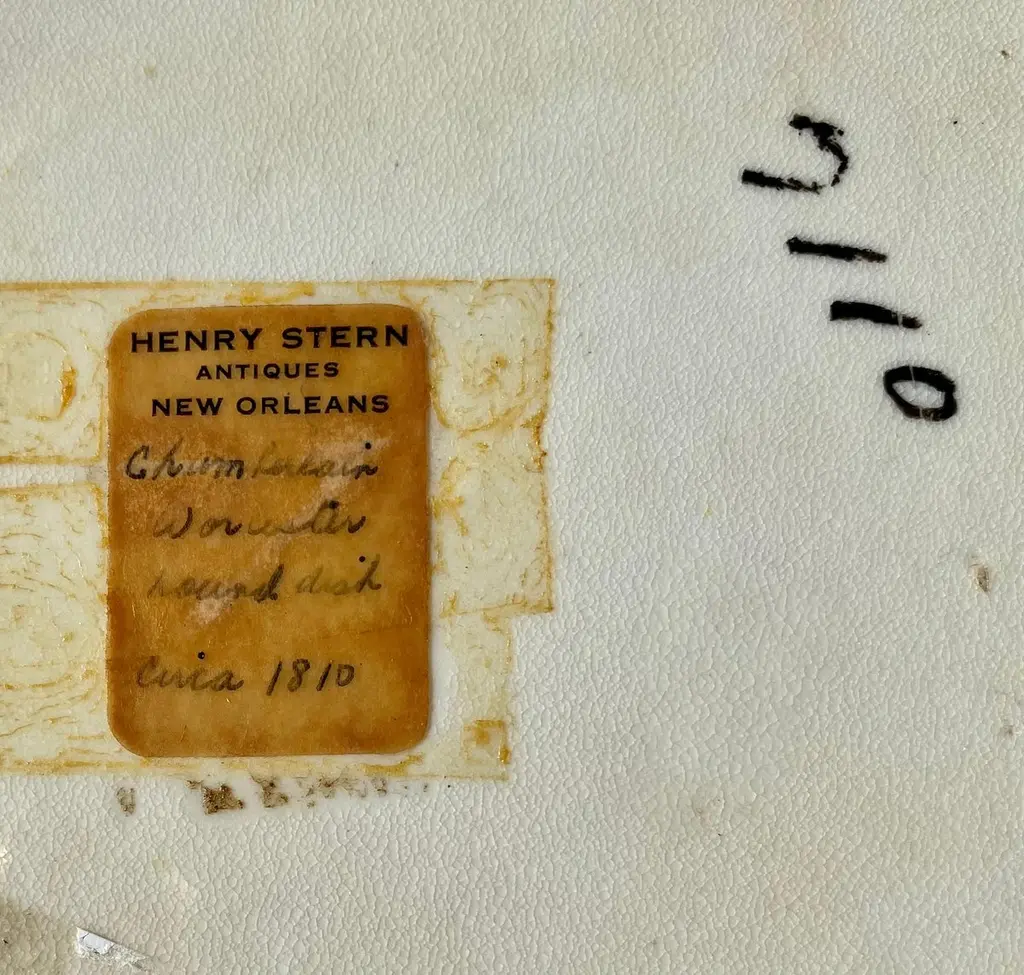 HENRY STERN
ANTIQUES
NEW ORLEANS
Chamberlain
Worcester
round dish
Circa 1810
7110